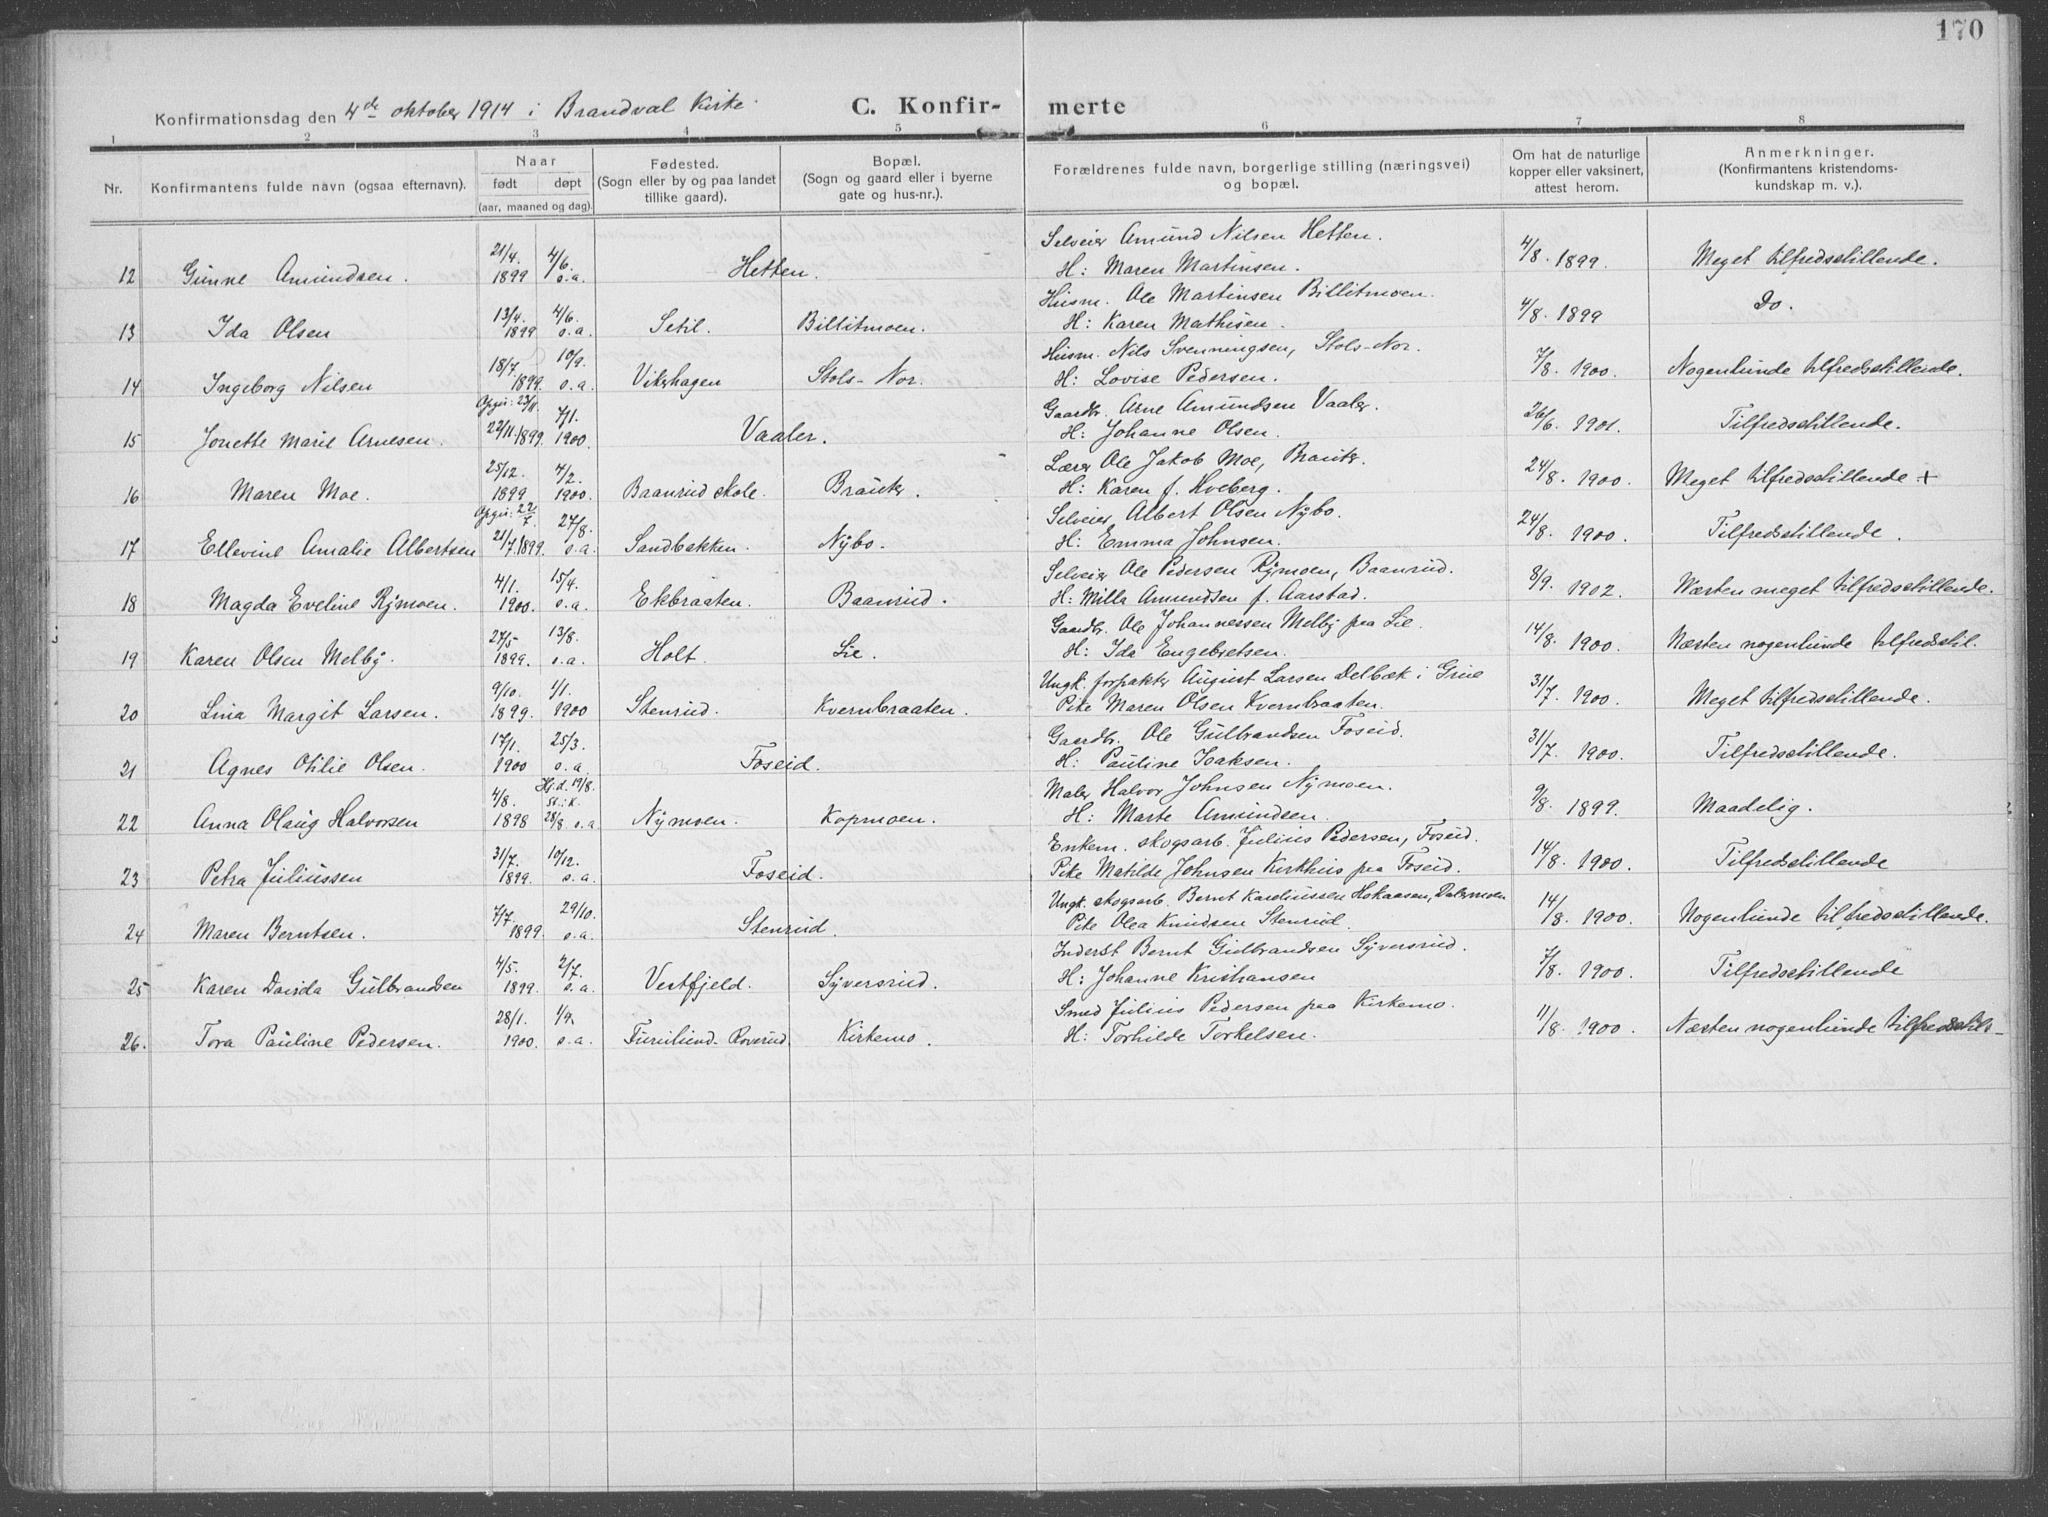 170
Konfirmationsdag den 4de oktober 1914 i Brandval Kirke. C. Konfir- merte
1 2 3 4 5 6 7 8
Nr. Konfirmantens fulde navn (ogsaa efternavn). Naar født døpt (aar, maaned og dag). Fødested. (Sogn eller by og paa landet tillike gaard). Bopæl. (Sogn og gaard eller i byerne gate og hus-nr.). Forældrenes fulde navn, borgerlige stilling (næringsvei) og bopæl. Om hat de naturlige kopper eller vaksinert, attest herom. Anmerkninger. (Konfirmantens kristendoms-kundskap m. v.).
21/4. 4/6. Selveier Amund Nilsen Hetten.
12 Gunne Amundsen. 1899 s.a. Hetten. H: Maren Martinsen. 4/8. 1899. Meget tilfredsstillende.
13/4. 4/6. Husm. Ole Martinsen Billitmoen.
13 Ida Olsen 1899 s.a. Setil. Billitmoen. H: Karen Mathisen. 4/8. 1899 Do.
18/7. 10/9. Husm. Nils Svenningsen, Stols-Nor.
14 Ingeborg Nilsen 1899. s.a. Vikerhagen Stols-Nor. H: Lovise Pedersen. 7/8. 1900. Nogenlunde tilfredsstillende.
Opgis: 23/11. 7/1. Gaardbr. Arne Amundsen Vaaler.
15 Jonette Marie Arnesen. 22/11.1899. 1900. Vaaler. H: Johanne Olsen. 26/6. 1901. Tilfredsstillende.
25/12. 4/2. Lærer Ole Jakob Moe, Brauter.
16 Maren Moe. 1899 1900. Baanrud skole. Brauter. H: Karen f. Hveberg. 24/8. 1900. Meget tilfredsstillende +
Opgis: 22/7. 27/8. Selveier Albert Olsen Nybo.
17 Ellevine Amalie Albertsen 21/7.1899. s.a. Sandbakken. Nybo. H: Emma Johnsen. 24/8. 1900. Tilfredsstillende.
4/1. 15/4. Selveier Ole Pedersen Rymoen, Baanrud.
18 Magda Eveline Rymoen. 1900. s.a. Ekbraaten. Baanrud. H: Milla Amundsen f. Aarstad. 8/9. 1902. Næsten meget tilfredsstillende.
27/5 13/8. Gaardbr. Ole Johannessen Melby paa Lie.
19 Karen Olsen Melby. 1899. s.a. Holt. Lie. H: Ida Engebretsen. 14/8. 1900. Næsten nogenlunde tilfredsstil.
9/10. 1/1. Ungk. forpakter August Larsen Delbæk i Grue
20 Lina Margit Larsen. 1899. 1900 Stenrud. Kvernbraaten. Pike Maren Olsen Kvernbraaten. 31/7. 1900. Meget tilfredsstillende.
17/1. 25/3. Gaardbr. Ole Gulbrandsen Foseid.
21 Agnes Otilie Olsen. 1900 s.a. Foseid. H: Pauline Isaksen. 31/7. 1900. Tilfredsstillende.
4/8. Hj.d. 19/8. st. i K. Maler Halvor Johnsen Nymoen.
22 Anna Olaug Halvorsen 1898 28/8 s.a Nymoen. Kopmoen. H: Marte Amundsen. 9/8. 1899. Maadelig.
31/7. 10/12. Enkem. skogsarb. Julius Pedersen, Foseid.
23 Petra Juliussen 1899. s.a. Foseid. Pike Matilde Johnsen Kirkhus paa Foseid. 14/8. 1900. Tilfredsstillende
7/7. 29/10. Ungk. skogsarb. Bernt Kareliussen Hokaasen, Dalermoen
24 Maren Berntsen. 1899. s.a. Stenrud. Pike Olea Knudsen Stenrud. 14/8. 1900. Nogenlunde tilfredsstillende.
4/5. 2/7. Inderst Bernt Gulbrandsen Syversrud.
25 Karen Davida Gulbrandsen 1899. s.a. Vestfjeld. Syversrud. H: Johanne Kristiansen 7/8. 1900. Tilfredsstillende
28/1. 1/4. Smed Julius Pedersen paa Kirkemo.
26. Tora Pauline Pedersen. 1900. s.a. Furulund-Roverud. Kirkemo. H: Torhilde Torkelsen. 11/8. 1900. Næsten nogenlunde tilfredsstils-